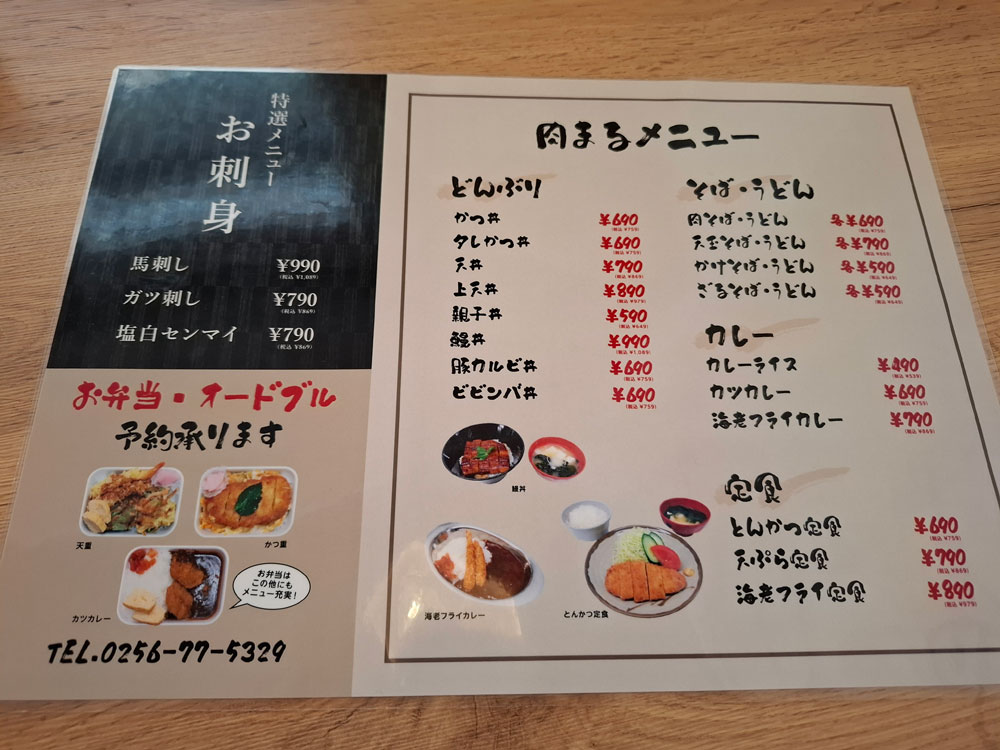 特選メニュー
お刺身
馬刺し ¥990
(税込 ¥1,089)
ガツ刺し ¥790
(税込 ¥869)
塩白センマイ ¥790
(税込 ¥869)
お弁当・オードブル
予約承ります
天重
かつ重
カツカレー
お弁当は
この他にも
メニュー充実!
TEL.0256-77-5329
肉まるメニュー
どんぶり
かつ丼 ¥690
(税込 ¥759)
タレかつ丼 ¥690
(税込 ¥759)
天丼 ¥790
(税込 ¥869)
上天丼 ¥890
(税込 ¥979)
親子丼 ¥590
(税込 ¥649)
鰻丼 ¥990
(税込 ¥1,089)
豚カルビ丼 ¥690
(税込 ¥759)
ビビンバ丼 ¥690
(税込 ¥759)
鰻丼
海老フライカレー
とんかつ定食
そば・うどん
肉そば・うどん 各¥690
(税込 ¥759)
天玉そば・うどん 各¥790
(税込 ¥869)
かけそば・うどん 各¥590
(税込 ¥649)
ざるそば・うどん 各¥590
(税込 ¥649)
カレー
カレーライス ¥490
(税込 ¥539)
カツカレー ¥690
(税込 ¥759)
海老フライカレー ¥790
(税込 ¥869)
定食
とんかつ定食 ¥690
(税込 ¥759)
天ぷら定食 ¥790
(税込 ¥869)
海老フライ定食 ¥890
(税込 ¥979)